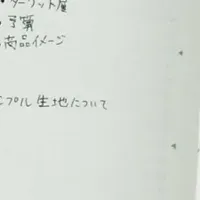 ・ターゲット層
・予算
・商品イメージ
ンプル生地について